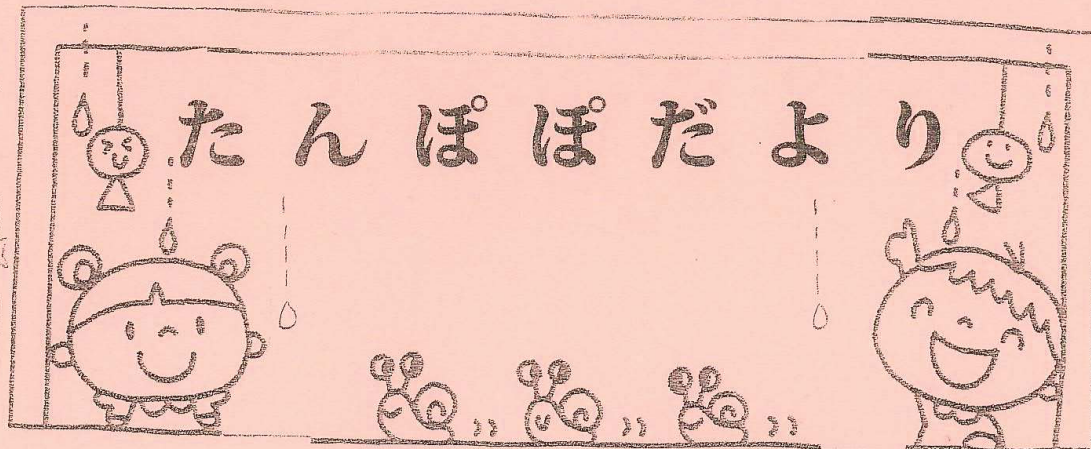 たんぽぽだより